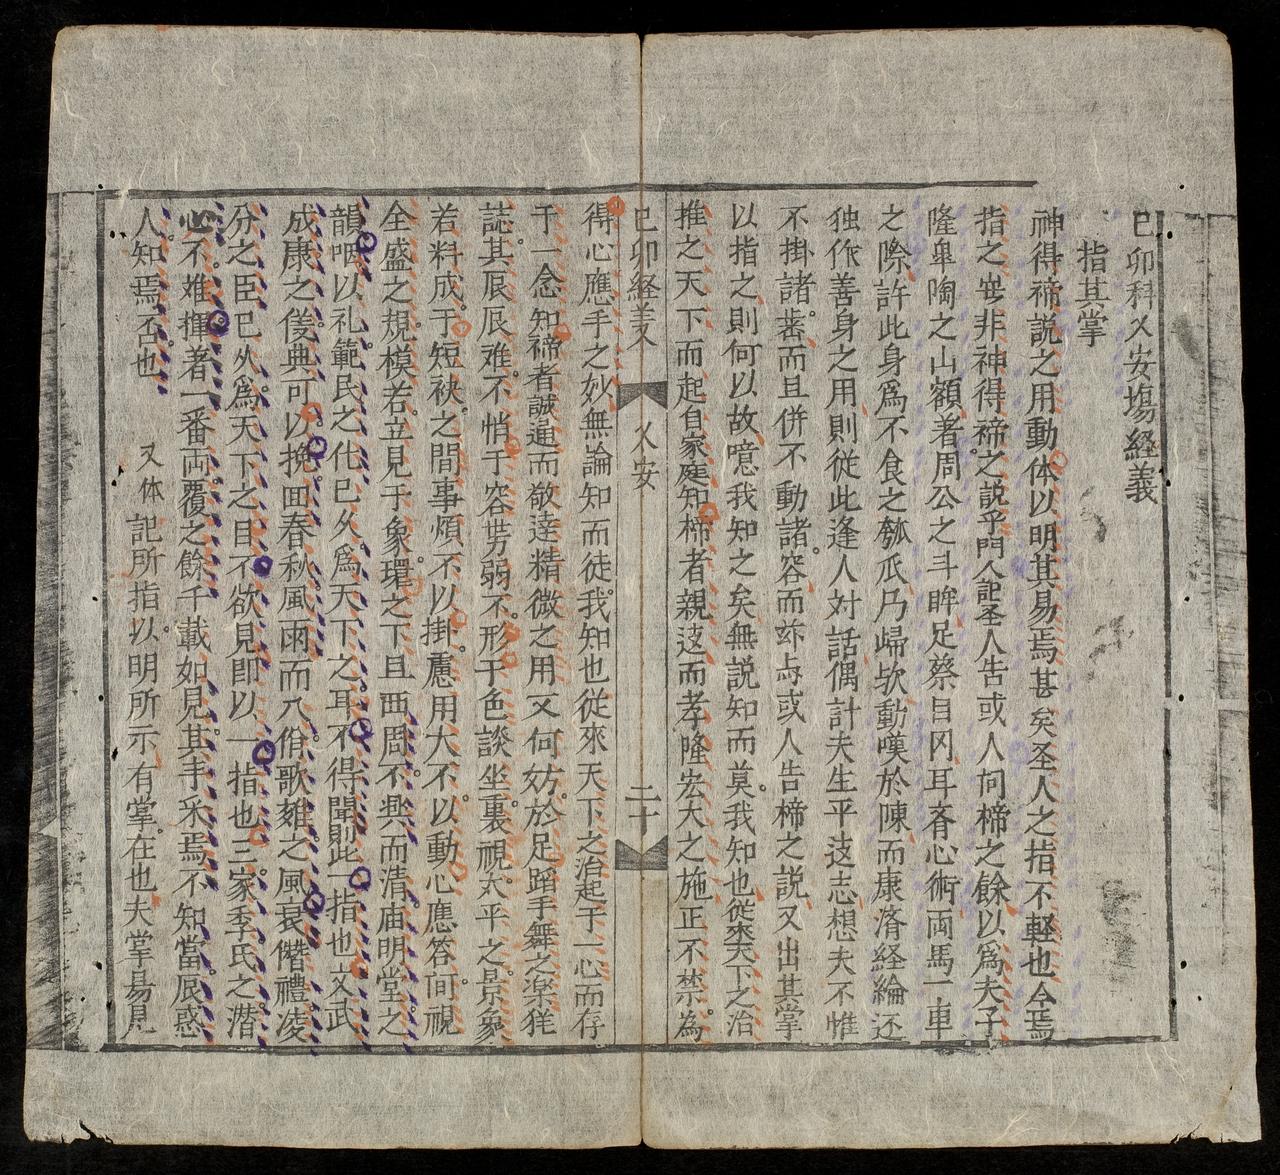 己卯科乂安塲経義
指其掌
神得禘説之用動体以明其易焉甚矣圣人之指不軽也今焉
指之岀非神得禘之説乎門人記圣人告或人问禘之餘以爲夫子
隆皐陶之山額者周公之斗眸足蔡目冈耳斉心術両馬一車
之際許此身爲不食之瓠瓜乃㱕欤動嘆於陳而康済経綸还
独作善身之用則従此逢人対話偶計夫生平这志想夫不惟
不掛諸而且併不動諸容而或人告禘之説又出其掌
以指之則何以故噫我知之矣無説知而莫我知也従来天下之治
推之天下而起自家庭知禘者親这而孝隆宏大之施正不禁為
己卯経義 乂安 二十
得心應手之妙無論知而徒我知也従來天下之治起于一心而存
于一念知禘者誠通而敬達精微之用又何妨於足蹈手舞之楽犹
誌其辰辰难不悄于容势弱不形于色談坐裏視太平之景象
若料成于短袂之間事煩不以掛慮用大不以動心應答间視
全盛之規模若立見于象環之下且西周不興而清庙明堂之
韻咽以礼範民之化已久爲天下之耳不得聞則此一指也文武
成康之㑺典可以挽回春秋風雨而八佾歌雍之風衰僭禮凌
分之臣已久爲天下之目不欲見即以一指也三家季氏之潜
心不难揮著一番両覆之餘千載如見其手采焉不知當辰惑
人知焉否也 又体 記所指以明所示有掌在也夫掌易見